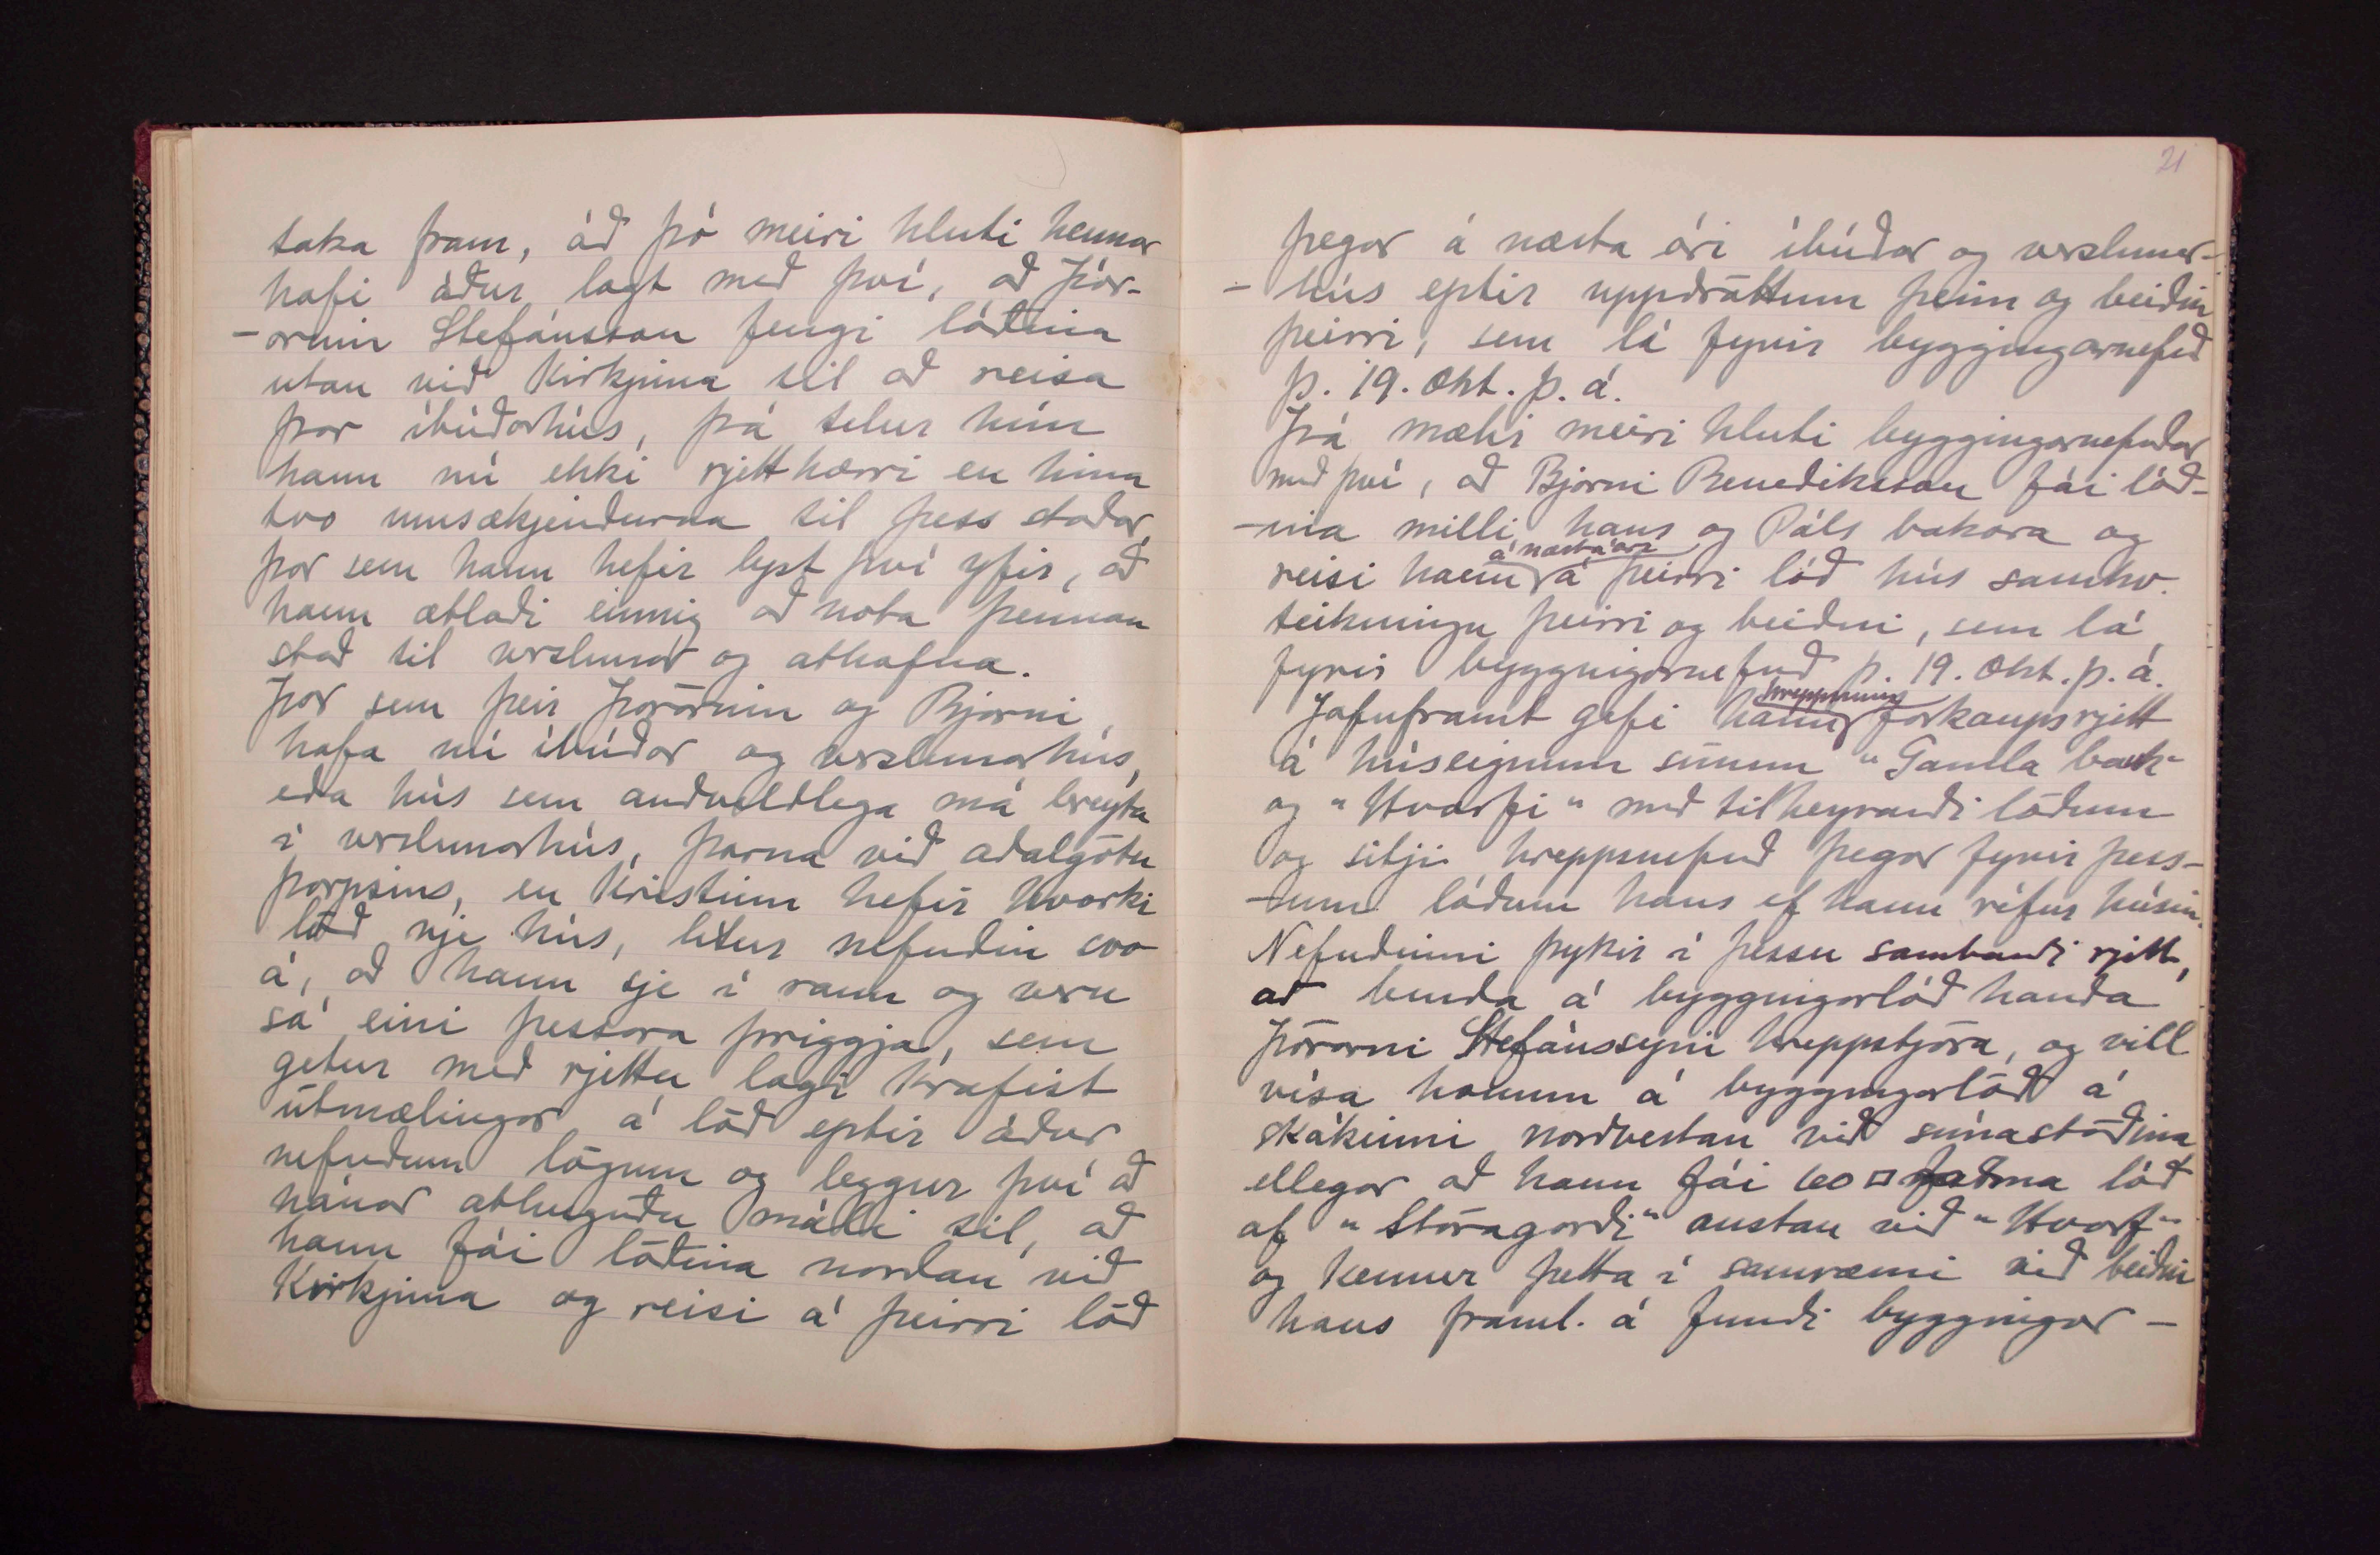 taka fram, að þó meiri hluti hennar
hafi áður lagt með því, að Þór-
-arinn Stefánsson fengi lóðina
utan við Kirkjuna til að reisa
þar íbúðarhús, þá telur hún
hann nú ekki rjetthærri en hina
tvo umsækjendurna til þess staðar,
þar sem hann hefir lýst því yfir, að
hann ætlaði einnig að nota þennan
stað til verslunar og athafna.
Þar sem þeir Þórarinn og Bjarni
hafa nú íbúðar og verslunarhús,
eða hús sem auðveldlega má breyta
í verslunarhús, þarna við aðalgötu
þorpsins, en Kristinn hefir hvorki
lóð nje hús, lítur nefndin svo
á, að hann sje í raun og veru
sá eini þessara þriggja, sem
getur með rjettu lagi krafist
útmælingar á lóð eptir áður
nefndum lögum og leggur því að
nánar athuguðu máli til, að
hann fái lóðina norðan við
Kirkjuna og reisi á þeirri lóð
21
þegar á næsta ári íbúðar og verslunar-
- hús eptir uppdráttum þeim og beiðni
þeirri, sem lá fyrir byggingarnefnd
þ. 19. okt. þ. á.
Þá mælir meiri hluti byggingarnefndar
með því, að Bjarni Benediktsson fái lóð-
-ina milli hans og Páls bakara og
reisi hann á næsta ári á þeirri lóð hús samkv.
teikningu þeirri og beiðni, sem lá
fyrir byggingarnefnd þ. 19. okt. þ. á.
Jafnframt gefi hann hreppnum forkaupsrjett
á húseignum sínum "Gamla bauk"
og "Hvarfi" með tilheyrandi lóðum
og sitji hreppsnefnd þegar fyrir þess-
-um lóðum hans ef hann rífur húsin.
Nefndinni þykir í þessu sambandi rjett,
að benda á byggingarlóð handa
Þórarni Stefánssyni hreppstjóra, og vill
vísa honum á byggingarlóð á
skákinni norðvestan við símastöðina
ellegar að hann fái 100 □ faðma lóð
af "Stóragarði" austan við "Hvarf"
og kemur þetta í samræmi við beiðni
hans framl. á fundi byggingar-